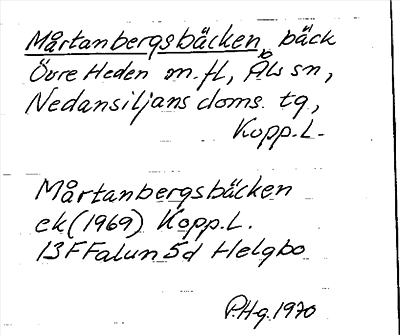 Mårtanbergsbäcken, bäck
Övre Heden m.fl., Åls sn,
Nedansiljans doms. tg,
Kopp.L.
Mårtanbergsbäcken
ek(1969) Kopp.L.
13F Falun 5d Helgbo
P.Hg.1970